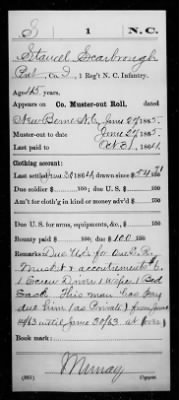 S 1 N.C.
Stancel Scarbrough
Co. D, 1 Reg't N. C. Infantry.
Aged 45 years.
Appears on Co. Muster-out Roll, dated
New Berne N.C., June 27 1865.
Muster-out to date June 27 1865.
Last paid to Oct 31, 1864.
Clothing account:
Last settled 1864; drawn since $
Due soldier $ 100; due U. S. $ 100
Am't for cloth'g in kind or money adv'd $ 100
Due U. S. for arms, equipments, &c., $ 100
Bounty paid $ 100; due $ 100 100
Remarks: Due U.S. for one
Musket & accoutrements
1 Screw Driver 1 Wiper 1
Sack This man has pay
due him (as Private) from
until June 30/63
Book mark:
Murray
(861) Copyist.